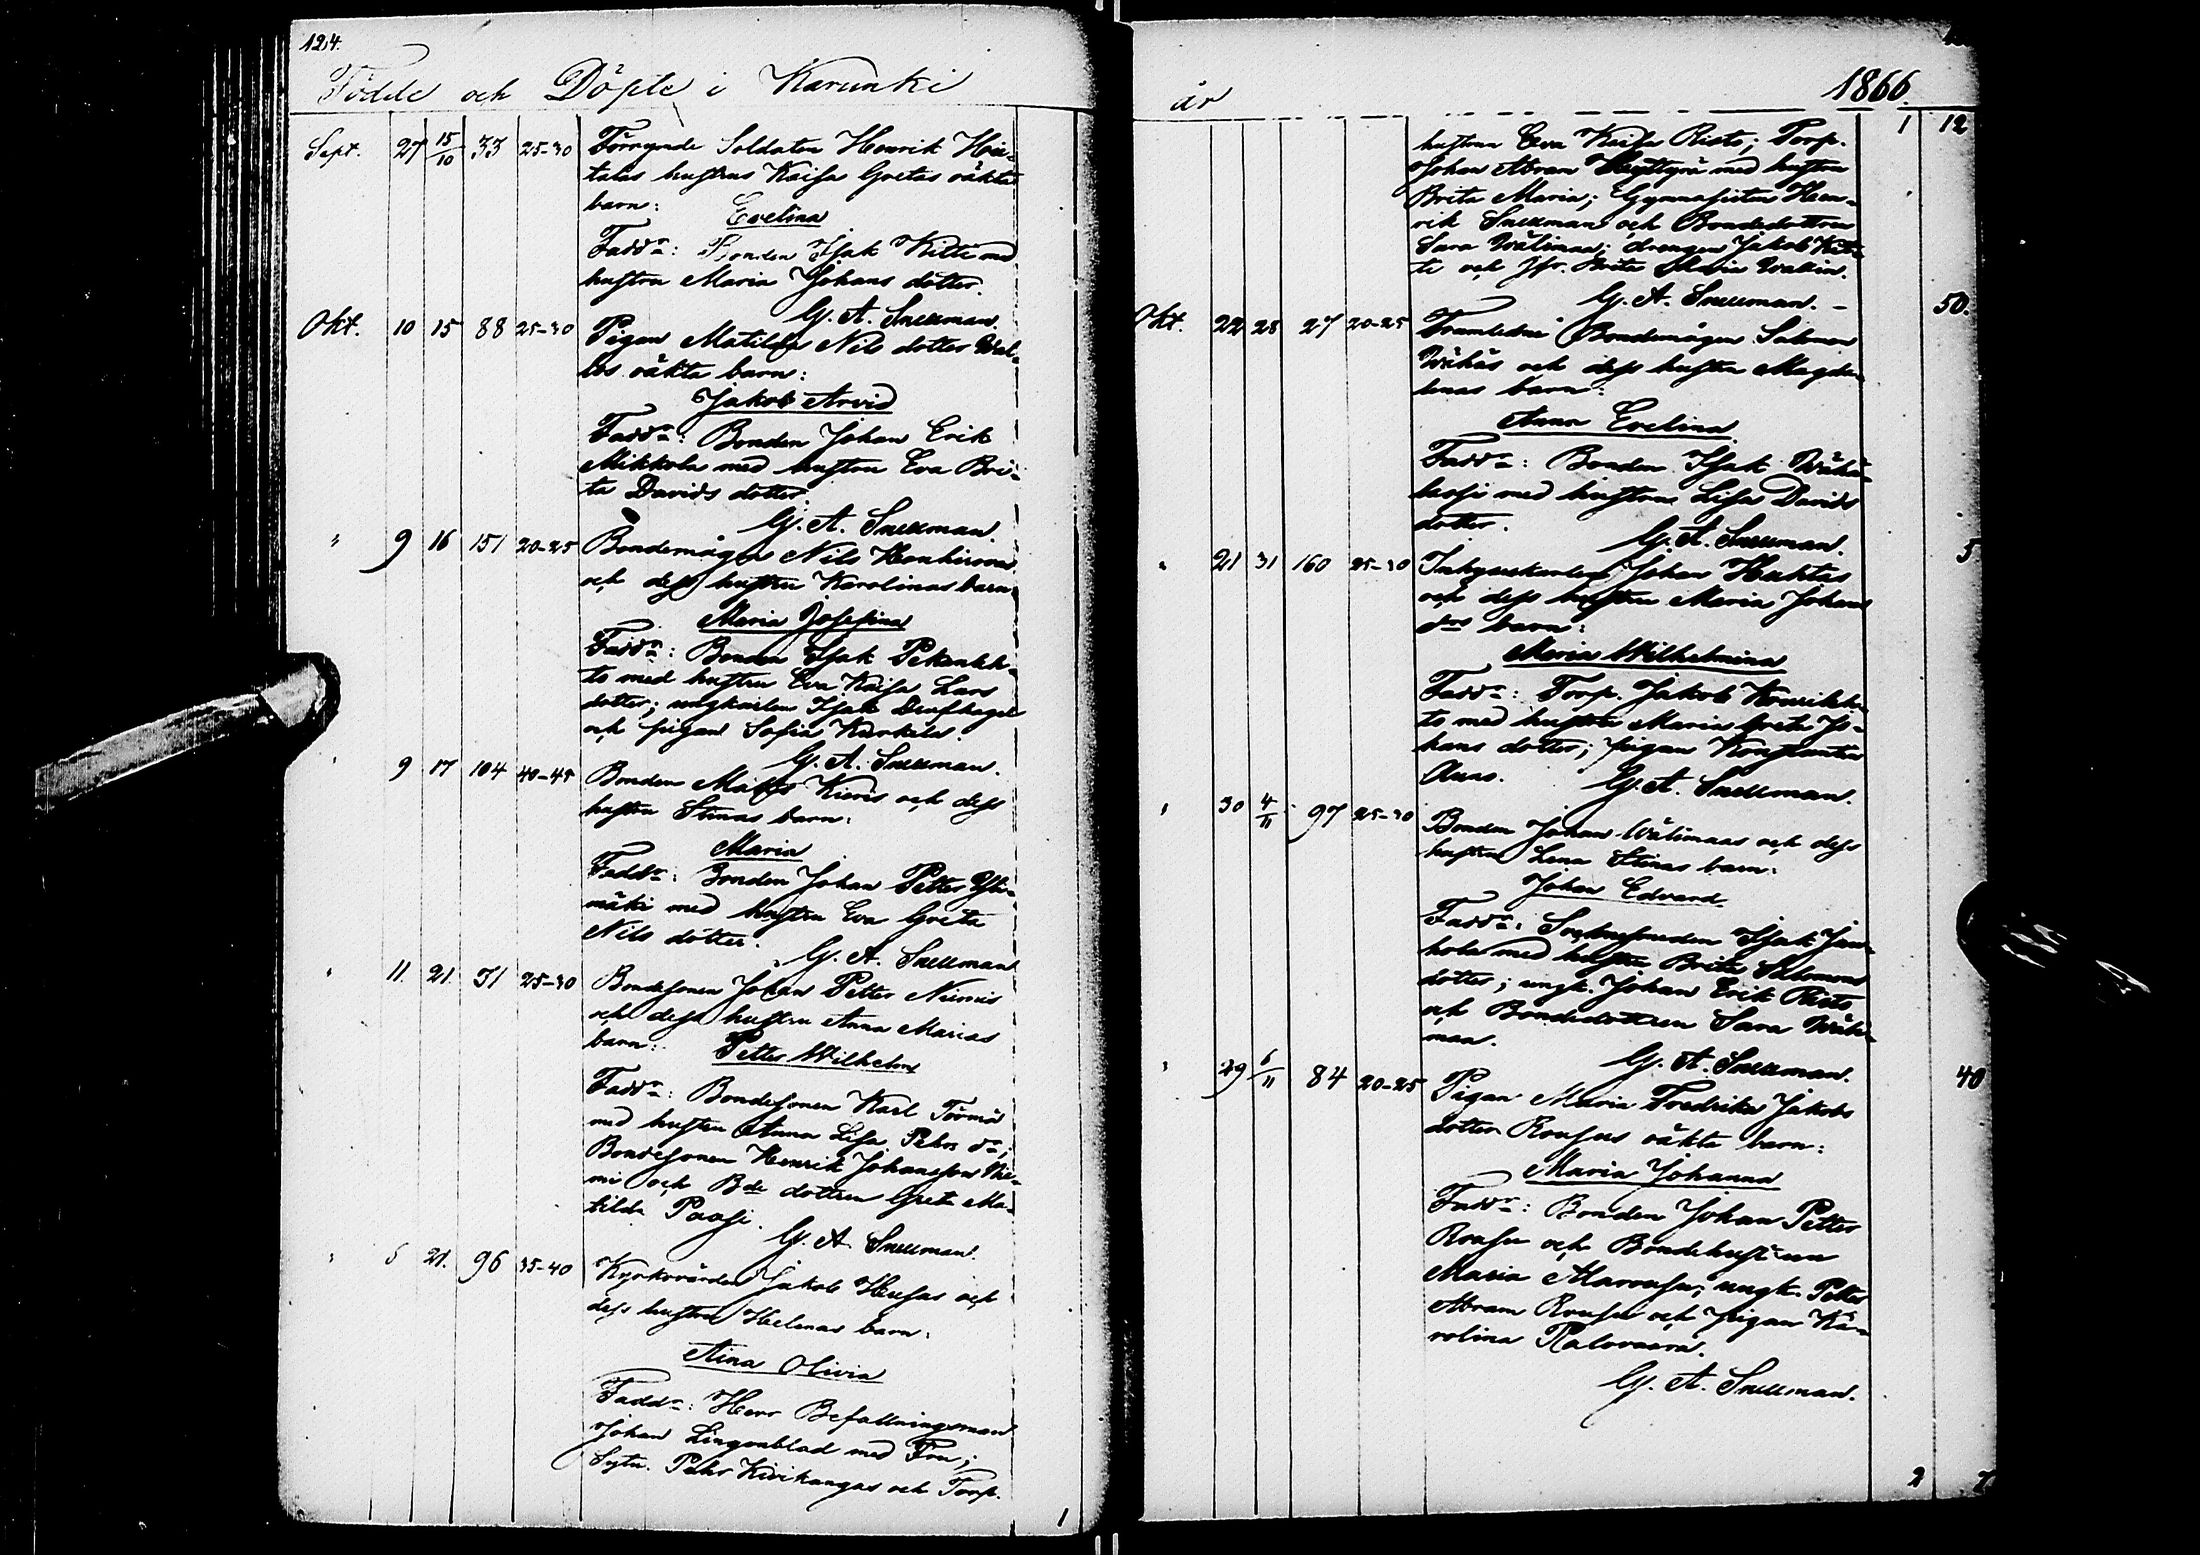 124.
Födde och Döpte i Karunki
Sept. 27 15/10 33 25-30 Förrymde Soldaten Henrik Hie-
talas hustrus Kaisa Gretas oäkta
barn: Evelina
Faddr: Bonden Isak Kitti med
hustru Maria Johans dotter.
G. A. Snellman.
Okt. 10 15 88 25-30 Pigan Matilda Nils dotter
oäkta barn:
Jakob Arvid
Faddr: Bonden Johan Erik
Mikkola med hustru Eva Bri-
ta Davids dotter.
G. A. Snellman.
" 9 16 151 20-25 Bondemågen Nils
och dess hustru Karolinas barn
Maria Josefina
Faddr: Bonden Isak
to med hustru Eva Kaisa Lars
dotter; ungkarlen Isak
och pigan Sofia
G. A. Snellman.
" 9 17 104 40-45 Bonden Matts och dess
hustru Stinas barn:
Maria
Faddr: Bonden Johan Petter Yli-
mäki med hustru Eva Greta
Nils dotter.
G. A. Snellman
" 11. 21. 31 25-30 Bondesonen Johan Petter Niemis
och dess hustru Anna Marias
barn: Petter Wilhelm
Faddr: Bondesonen Karl Törmä
med hustru Anna Lisa Pehrs dr;
Bondesonen Henrik Johansson Nie-
mi och Bde dottren Greta Ma-
tilda Paasi.
G. A. Snellman.
" 5 21. 96 35-40 Kyrkovärden Jakob Husas och
dess hustru Helenas barn:
Aina Olivia
Faddr: Herr Befallningsman
Johan Lingonblad med Fru;
Sytn. Pehr Kivikangas och Torp.
1
år 1866.
hustrun Eva Kaisa Risto; Torp. 1 12
Johan Abram med hustru
Brita Maria; Gymnasisten Hen-
rik Snellman och Bondedottren
Sara Wälimaa; drengen Jakob Kit-
ti och Jfr. Brita Maria Wallin.
G. A. Snellman. -
Okt. 22 28 27 20-25 Framlidne Bondemågen Salomon 50.
Wähäs och dess hustru Magda-
lenas barn:
Anna Evelina
Faddr: Bonden Isak Wähä-
med hustrun Lisa Davids
dotter.
G. A. Snellman.
" 21 31 160 25-30 Inhyseskarlen Johan Huhtas 5
och dess hustru Maria Johans
drs barn:
Maria Wilhelmina
Faddr: Torp. Jakob
to med hustru Maria Greta Jo-
hans dotter; pigan Konstantia
G. A. Snellman.
" 30 4/11 97 25-30 Bonden Johan Wälimaas och dess
hustru Lena Stinas barn:
Johan Edvard
Faddr: Isak Jun-
kola med hustru Brita Salomons
dotter; ungk. Johan Erik Risto
och Bondedottren Sara Wäli-
maa.
G. A. Snellman.
" 29 6/11 84 20-25 Pigan Maria Fredrika Jakobs 40
dotter Rousus oäkta barn:
Maria Johanna
Faddr: Bonden Johan Petter
Rousu och Bondehustrun
Maria ungk. Petter
Abram Rousu och pigan Ka-
rolina Palovaara.
G. A. Snellman.
2 7